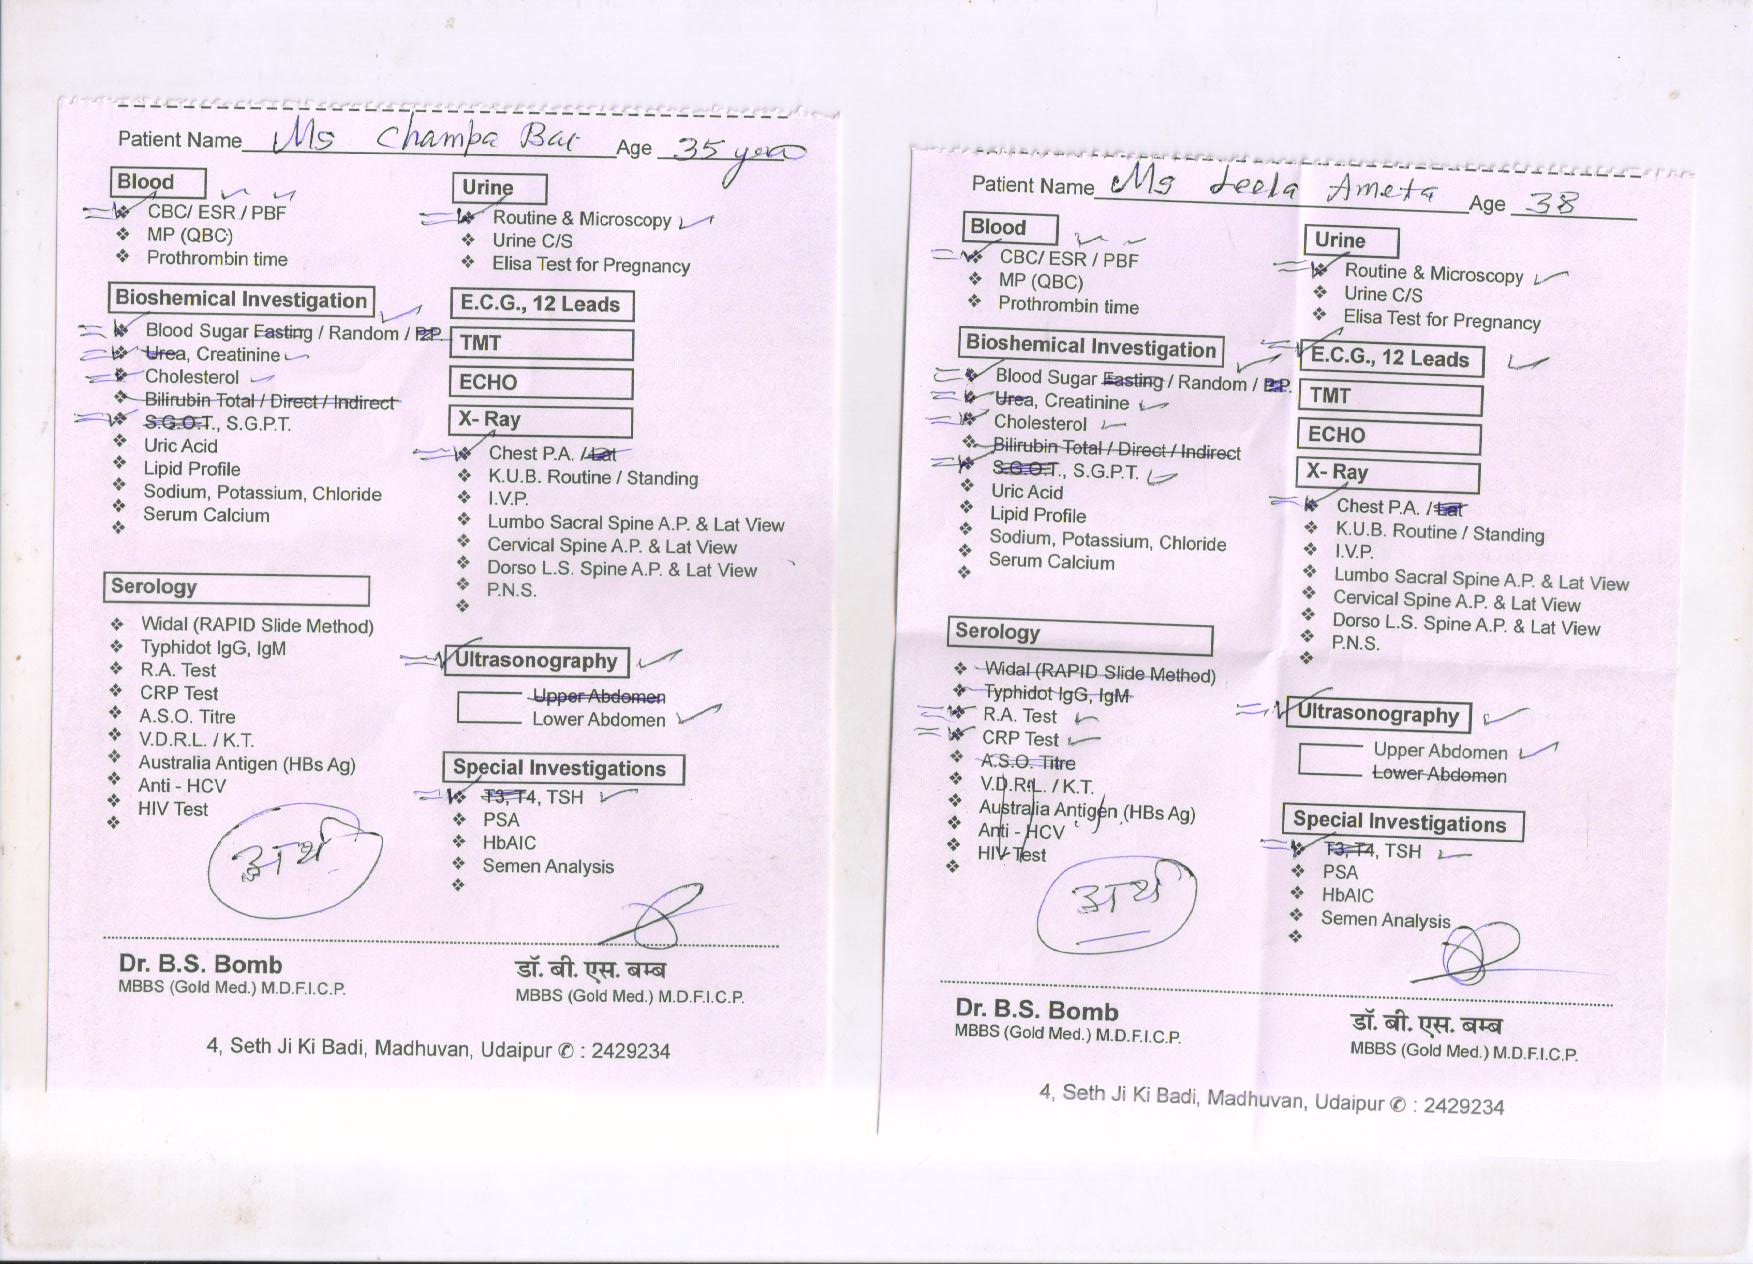 Patient Name Ms Champa Bai Age 35 year
Blood
CBC/ ESR / PBF
MP (QBC)
Prothrombin time
Bioshemical Investigation
Blood Sugar Fasting / Random / P.P.
Urea, Creatinine
Cholesterol
Bilirubin Total / Direct / Indirect
S.G.O.T., S.G.P.T.
Uric Acid
Lipid Profile
Sodium, Potassium, Chloride
Serum Calcium
Serology
Widal (RAPID Slide Method)
Typhidot IgG, IgM
R.A. Test
CRP Test
A.S.O. Titre
V.D.R.L. / K.T.
Australia Antigen (HBs Ag)
Anti - HCV
HIV Test
Urine
Routine & Microscopy
Urine C/S
Elisa Test for Pregnancy
E.C.G., 12 Leads
TMT
ECHO
X- Ray
Chest P.A. / Lat
K.U.B. Routine / Standing
I.V.P.
Lumbo Sacral Spine A.P. & Lat View
Cervical Spine A.P. & Lat View
Dorso L.S. Spine A.P. & Lat View
P.N.S.
Ultrasonography
Upper Abdomen
Lower Abdomen
Special Investigations
T3, T4, TSH
PSA
HbAIC
Semen Analysis
Dr. B.S. Bomb
MBBS (Gold Med.) M.D.F.I.C.P.
डॉ. बी. एस. बम्ब
MBBS (Gold Med.) M.D.F.I.C.P.
4, Seth Ji Ki Badi, Madhuvan, Udaipur ✆ : 2429234
Patient Name Ms Leela Ameta Age 38
Blood
CBC/ ESR / PBF
MP (QBC)
Prothrombin time
Bioshemical Investigation
Blood Sugar Fasting / Random / P.P.
Urea, Creatinine
Cholesterol
Bilirubin Total / Direct / Indirect
S.G.O.T., S.G.P.T.
Uric Acid
Lipid Profile
Sodium, Potassium, Chloride
Serum Calcium
Serology
Widal (RAPID Slide Method)
Typhidot IgG, IgM
R.A. Test
CRP Test
A.S.O. Titre
V.D.R.L. / K.T.
Australia Antigen (HBs Ag)
Anti - HCV
HIV Test
Urine
Routine & Microscopy
Urine C/S
Elisa Test for Pregnancy
E.C.G., 12 Leads
TMT
ECHO
X- Ray
Chest P.A. / Lat
K.U.B. Routine / Standing
I.V.P.
Lumbo Sacral Spine A.P. & Lat View
Cervical Spine A.P. & Lat View
Dorso L.S. Spine A.P. & Lat View
P.N.S.
Ultrasonography
Upper Abdomen
Lower Abdomen
Special Investigations
T3, T4, TSH
PSA
HbAIC
Semen Analysis
Dr. B.S. Bomb
MBBS (Gold Med.) M.D.F.I.C.P.
डॉ. बी. एस. बम्ब
MBBS (Gold Med.) M.D.F.I.C.P.
4, Seth Ji Ki Badi, Madhuvan, Udaipur ✆ : 2429234